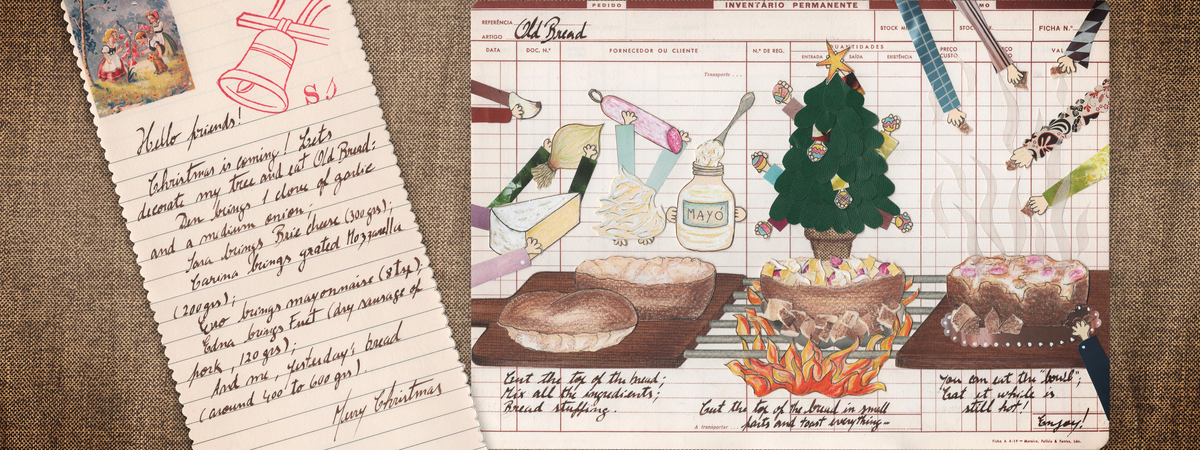 SJ
Hello friends!
Christmas is coming! Lets
decorate my tree and eat Old Bread:
Den brings 1 clove of garlic
and a medium onion;
Sara brings Brie cheese (300grs);
Carina brings grated Mozzarella
(200grs);
brings mayonnaise (8tsp);
Edna brings Fuet (dry sausage of
pork, 120grs);
And me, yesterday's bread
(around 400 to 600 grs).
Merry Christmas
PEDIDO
INVENTÁRIO PERMANENTE
REFERÊNCIA
ARTIGO
Old Bread
STOCK
STOCK
FICHA N.º
DATA
DOC. N.º
FORNECEDOR OU CLIENTE
N.º DE REG.
QUANTIDADES
ENTRADA
SAÍDA
EXISTÊNCIA
PREÇO
CUSTO
Transporte . . .
MAYÓ
Cut the top of the bread;
Mix all the ingredients;
Bread stuffing.
Cut the top of the bread in small
parts and toast everything-
A transporter . . .
You can eat the "bowl";
Eat it while is
still hot!
Enjoy!